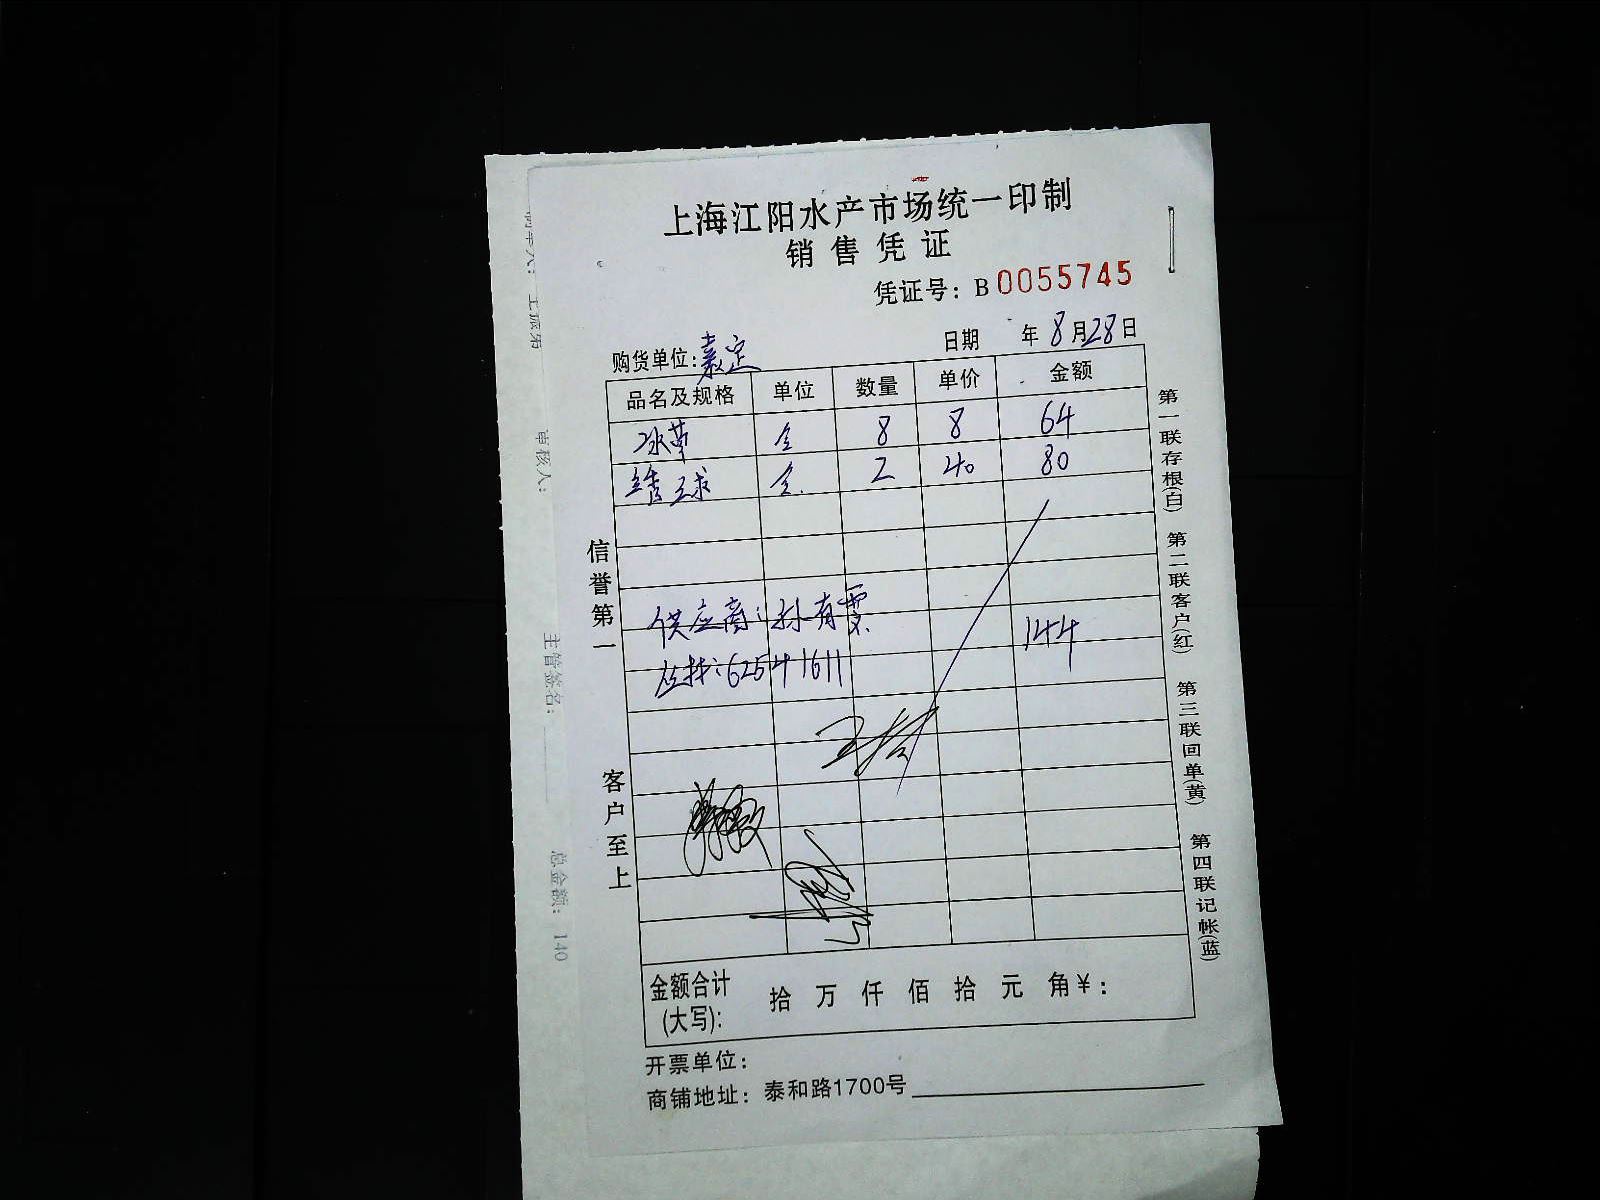 上海江阳水产市场统一印制
销售凭证
凭证号：B 0055745
购货单位：嘉定 日期 年 8 月 28 日
品名及规格 单位 数量 单价 金额
冰草 仒 8 8 64
绣球 仒 2 40 80
供应商：孙有票
6254 1611
144
信誉第一
客户至上
第一联存根(白)
第二联客户(红)
第三联回单(黄)
第四联记帐(蓝)
金额合计
(大写)：
拾 万 仟 佰 拾 元 角 ¥：
开票单位：
商铺地址：泰和路1700号
审核人：
主管签名：
总金额： 140